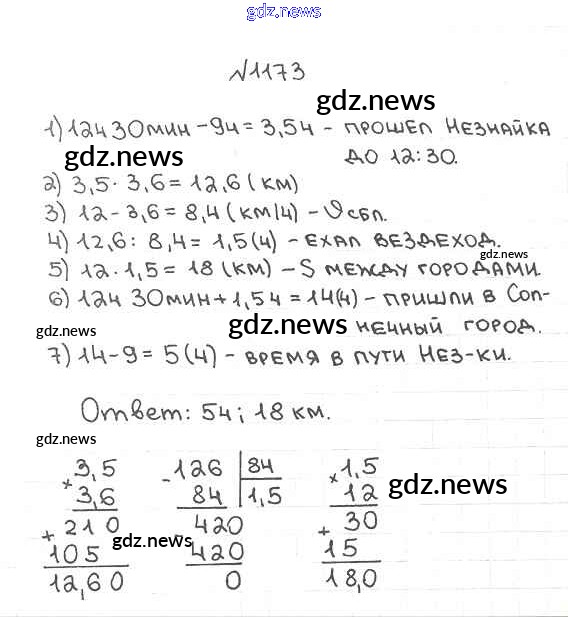 gdz.news
№1173
gdz.news
1) 12ч 30мин - 9ч = 3,5ч - прошел Незнайка
gdz.news
до 12:30.
2) 3,5 · 3,6 = 12,6 (км)
3) 12 - 3,6 = 8,4 (км/ч) - υ сбл.
4) 12,6 : 8,4 = 1,5 (ч) - ехал вездеход.
gdz.news
5) 12 · 1,5 = 18 (км) - S между городами.
6) 12ч 30мин + 1,5ч = 14 (ч) - пришли в Сол-
gdz.news gdz.news
нечный город.
7) 14 - 9 = 5 (ч) - время в пути Нез-ки.
Ответ: 5ч; 18 км.
gdz.news
3,5 126 84 1,5
× 3,6 - 84 1,5 × 12
gdz.news
210 420 30
+ 105 - 420 + 15
gdz.news
12,60 0 18,0